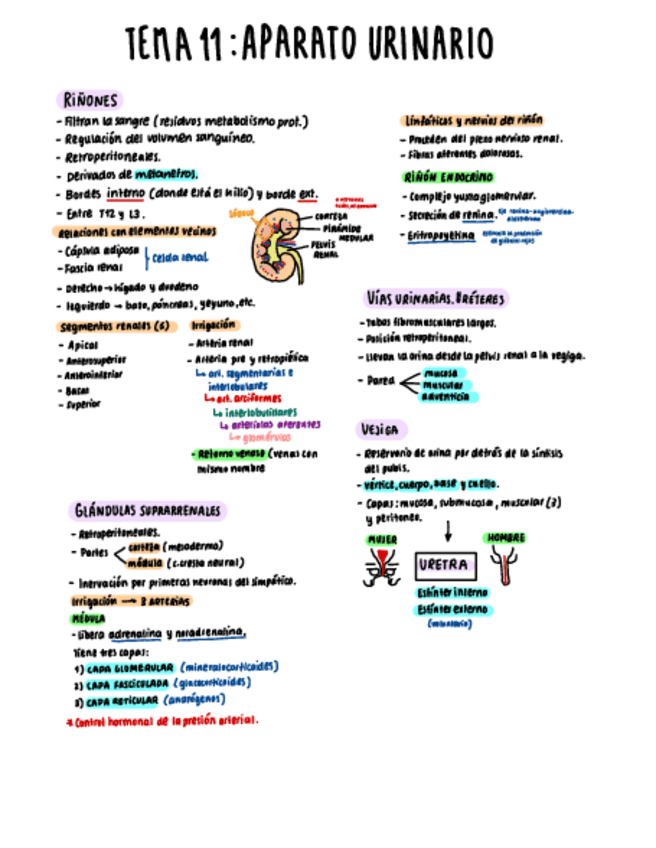 TEMA 11: APARATO URINARIO
RIÑONES
- Filtran la sangre (residuos metabolismo prot.)
- Regulación del volumen sanguíneo.
- Retroperitoneales.
- Derivados de metanefros.
- Bordes interno (donde está el hilio) y borde ext.
- Entre T12 y L3.
Relaciones con elementos vecinos
- Cápsula adiposa
- Fascia renal
Celda renal
- Derecho → hígado y duodeno
- Izquierdo → bazo, páncreas, yeyuno, etc.
LÓBULO
CORTEZA
PIRÁMIDE MEDULAR
PELVIS RENAL
Segmentos renales (6)
- Apical
- Anterosuperior
- Anteroinferior
- Basal
- Superior
Irrigación
- Arteria renal
- Arteria pre y retropiélica
↳ art. segmentarias e interlobulares
↳ art. arciformes
↳ interlobulillares
↳ arteriolas aferentes
↳ glomérulo
- Retorno venoso (venas con mismo nombre
GLÁNDULAS SUPRARRENALES
- Retroperitoneales.
- Partes
corteza (mesodermo)
médula (c. cresta neural)
- Inervación por primeras neuronas del simpático.
Irrigación → 3 ARTERIAS
MÉDULA
- Libera adrenalina y noradrenalina,
Tiene tres capas:
1) CAPA GLOMERULAR (mineralocorticoides)
2) CAPA FASCICULADA (glucocorticoides)
3) CAPA RETICULAR (andrógenos)
* Control hormonal de la presión arterial.
Linfáticos y nervios del riñón
- Proceden del plexo nervioso renal.
- Fibras aferentes dolorosas.
RIÑÓN ENDOCRINO
- Complejo yuxtaglomerular.
- Secreción de renina. Eje renina-angiotensina-aldosterona
- Eritropoyetina Estimula la producción de glóbulos rojos
VÍAS URINARIAS. URÉTERES
- Tubos fibromusculares largos.
- Posición retroperitoneal.
- Llevan la orina desde la pelvis renal a la vegiga.
- Pared
mucosa
muscular
adventicia
VEJIGA
- Reservorio de orina por detrás de la sínfisis
del pubis.
- vértice, cuerpo, base y cuello.
- Capas: mucosa, submucosa, muscular (3)
y peritoneo.
MUJER
URETRA
HOMBRE
Esfínter interno
Esfínter externo
(voluntario)